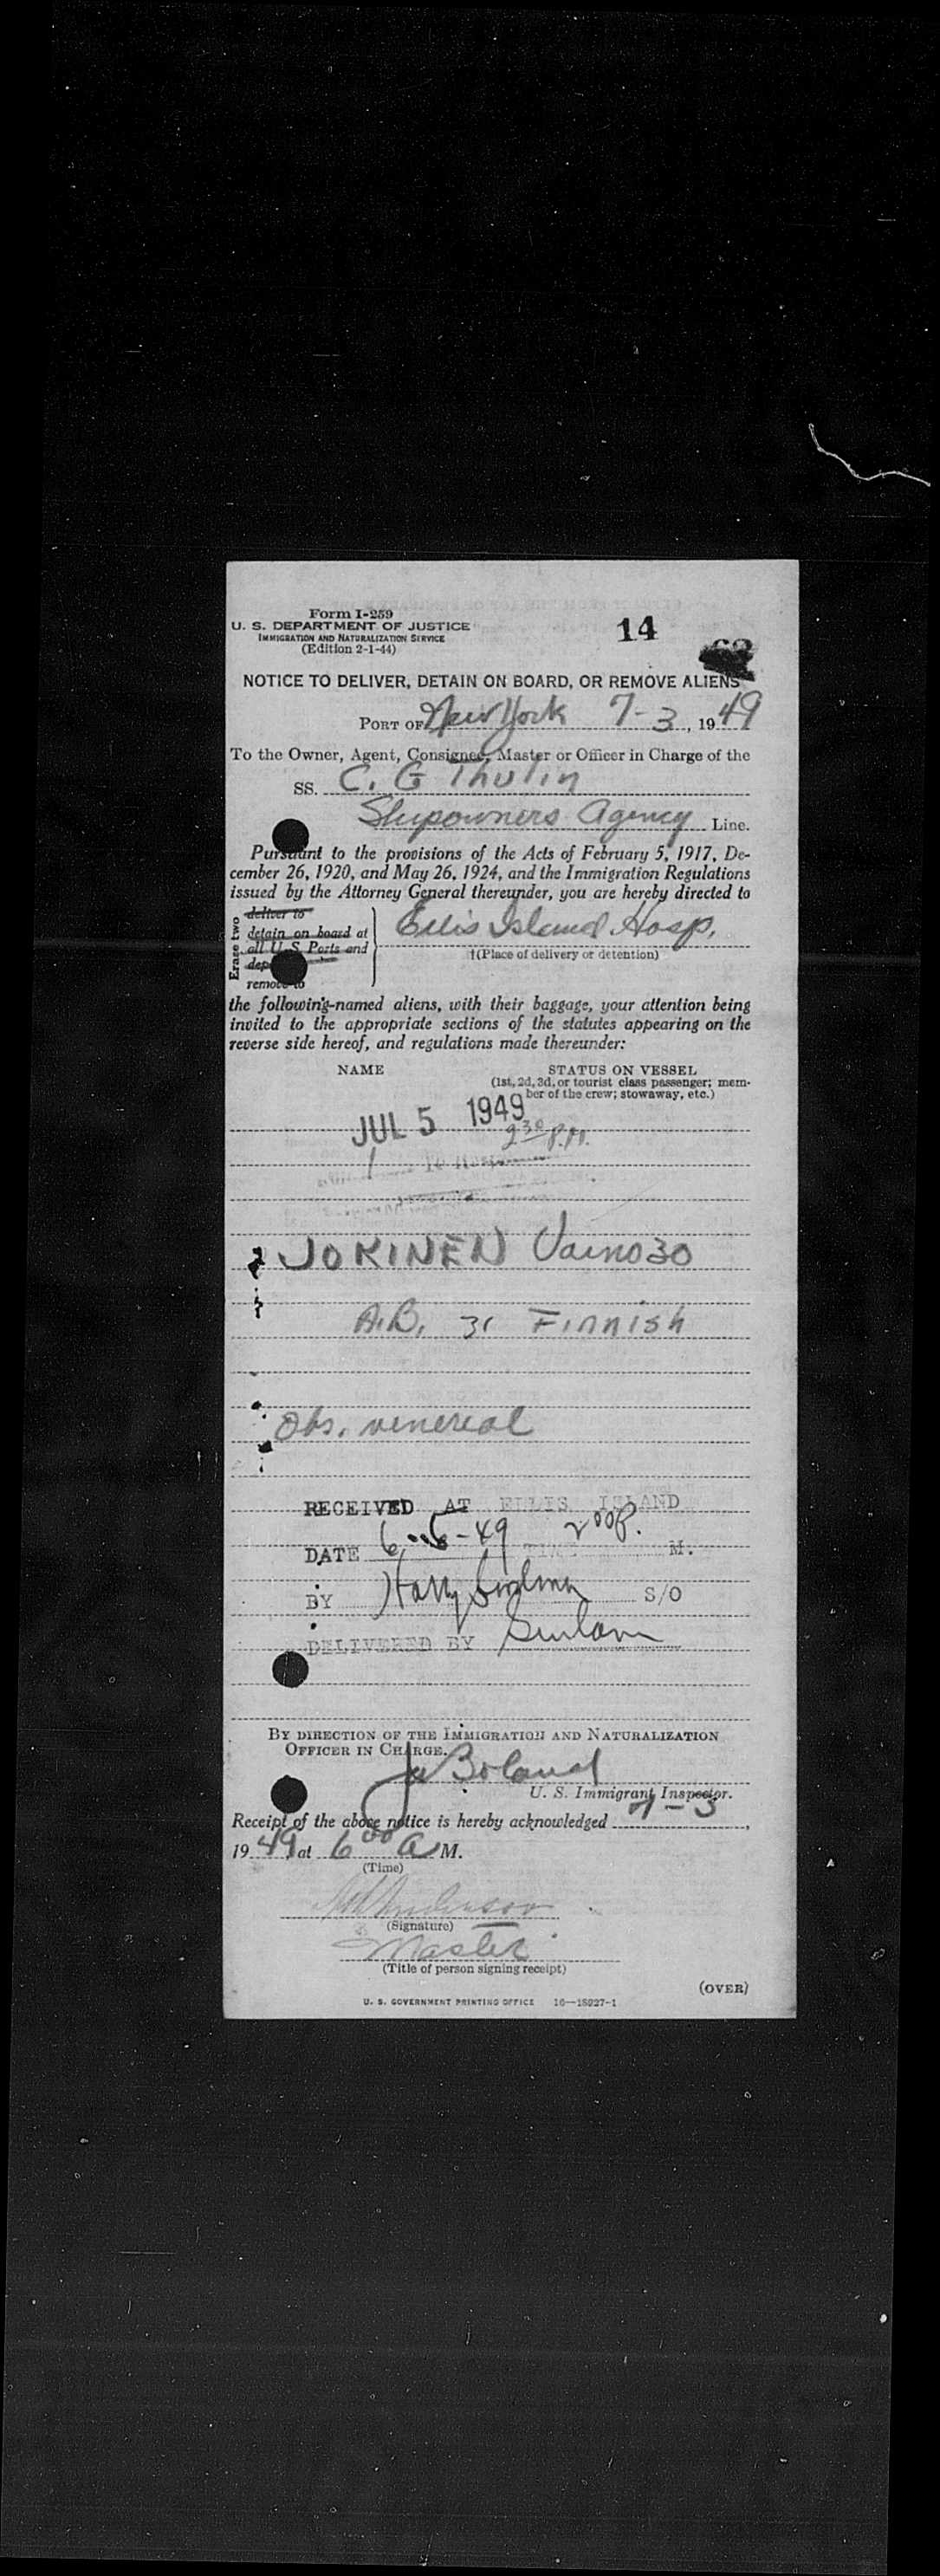 Form I-259
U. S. DEPARTMENT OF JUSTICE
IMMIGRATION AND NATURALIZATION SERVICE
(Edition 2-1-44)
14
NOTICE TO DELIVER, DETAIN ON BOARD, OR REMOVE ALIENS
PORT OF New York 7-3, 1949
To the Owner, Agent, Consignee, Master or Officer in Charge of the
SS. C. G Thulin
Shipowners Agency Line.
Pursuant to the provisions of the Acts of February 5, 1917, De-
cember 26, 1920, and May 26, 1924, and the Immigration Regulations
issued by the Attorney General thereunder, you are hereby directed to
Erase two
deliver to
detain on board at
all U. S. Ports and
remove to
Ellis Island Hosp.
†(Place of delivery or detention)
the following-named aliens, with their baggage, your attention being
invited to the appropriate sections of the statutes appearing on the
reverse side hereof, and regulations made thereunder:
NAME
STATUS ON VESSEL
(1st, 2d, 3d, or tourist class passenger; mem-
ber of the crew; stowaway, etc.)
JUL 5 1949
2 30 P.M.
JOKINEN Vaino 30
A.B. 31 Finnish
Obs. venereal
RECEIVED AT ELLIS ISLAND
DATE 49 2 00 P. M.
BY Harry S/O
DELIVERED BY
BY DIRECTION OF THE IMMIGRATION AND NATURALIZATION
OFFICER IN CHARGE.
Boland
U. S. Immigrant Inspector.
Receipt of the above notice is hereby acknowledged 7-3,
1949 at 6 00 A M.
(Time)
Anderson
(Signature)
Master
(Title of person signing receipt)
(OVER)
U. S. GOVERNMENT PRINTING OFFICE 16—18927-1